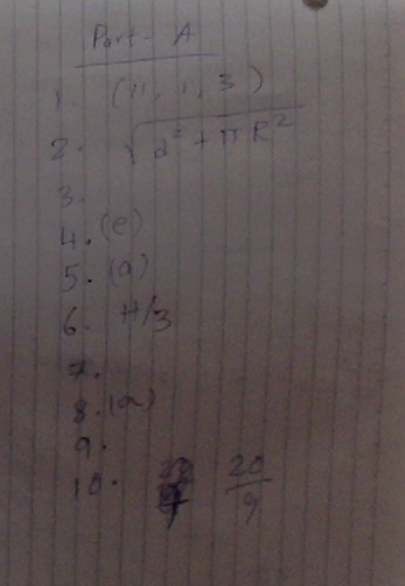 Part - A
1. (11, 1, 3)
2. √(d² + πR²)
3.
4. (e)
5. (a)
6. H/3
7.
8. (a)
9.
10. 20/9